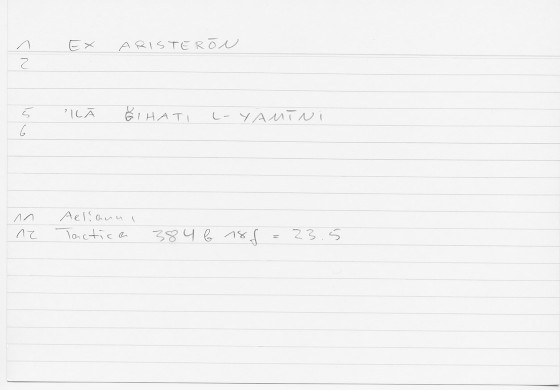 1 EX ARISTERŌN
2
5 'ILĀ ĞIHATI L-YAMĪNI
6
11 Aelianus
12 Tactica 384 b 18f = 23.5